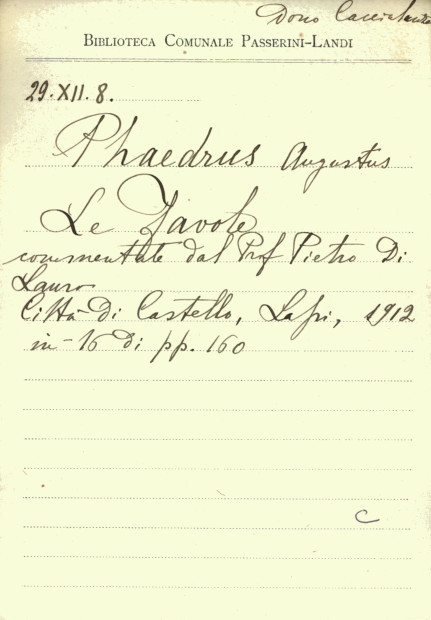 Dono
BIBLIOTECA COMUNALE PASSERINI-LANDI
29.XII.8.
Phaedrus Augustus
Le Favole
commentate dal Prof Pietro Di
Lauro
Città Di Castello, Lapi, 1912
in-16 di pp. 160
C